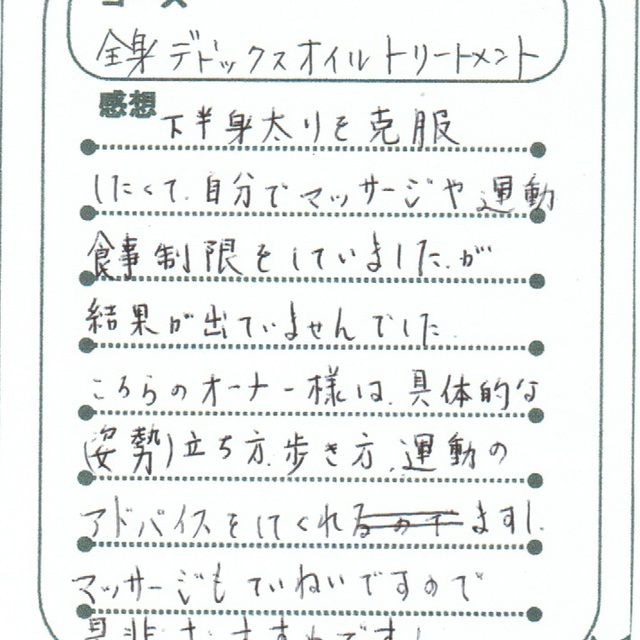 コース
全身デトックスオイルトリートメント
感想
下半身太りを克服
したくて、自分でマッサージや運動
食事制限をしていました。が
結果が出ていませんでした
こちらのオーナー様は、具体的な
(姿勢)立ち方、歩き方、運動の
アドバイスをしてくれますし、
マッサージもていねいですので
是非おすすめです!